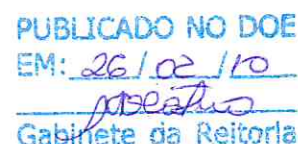 PUBLICADO NO DOE
EM: 26/02/10
Gabinete da Reitoria